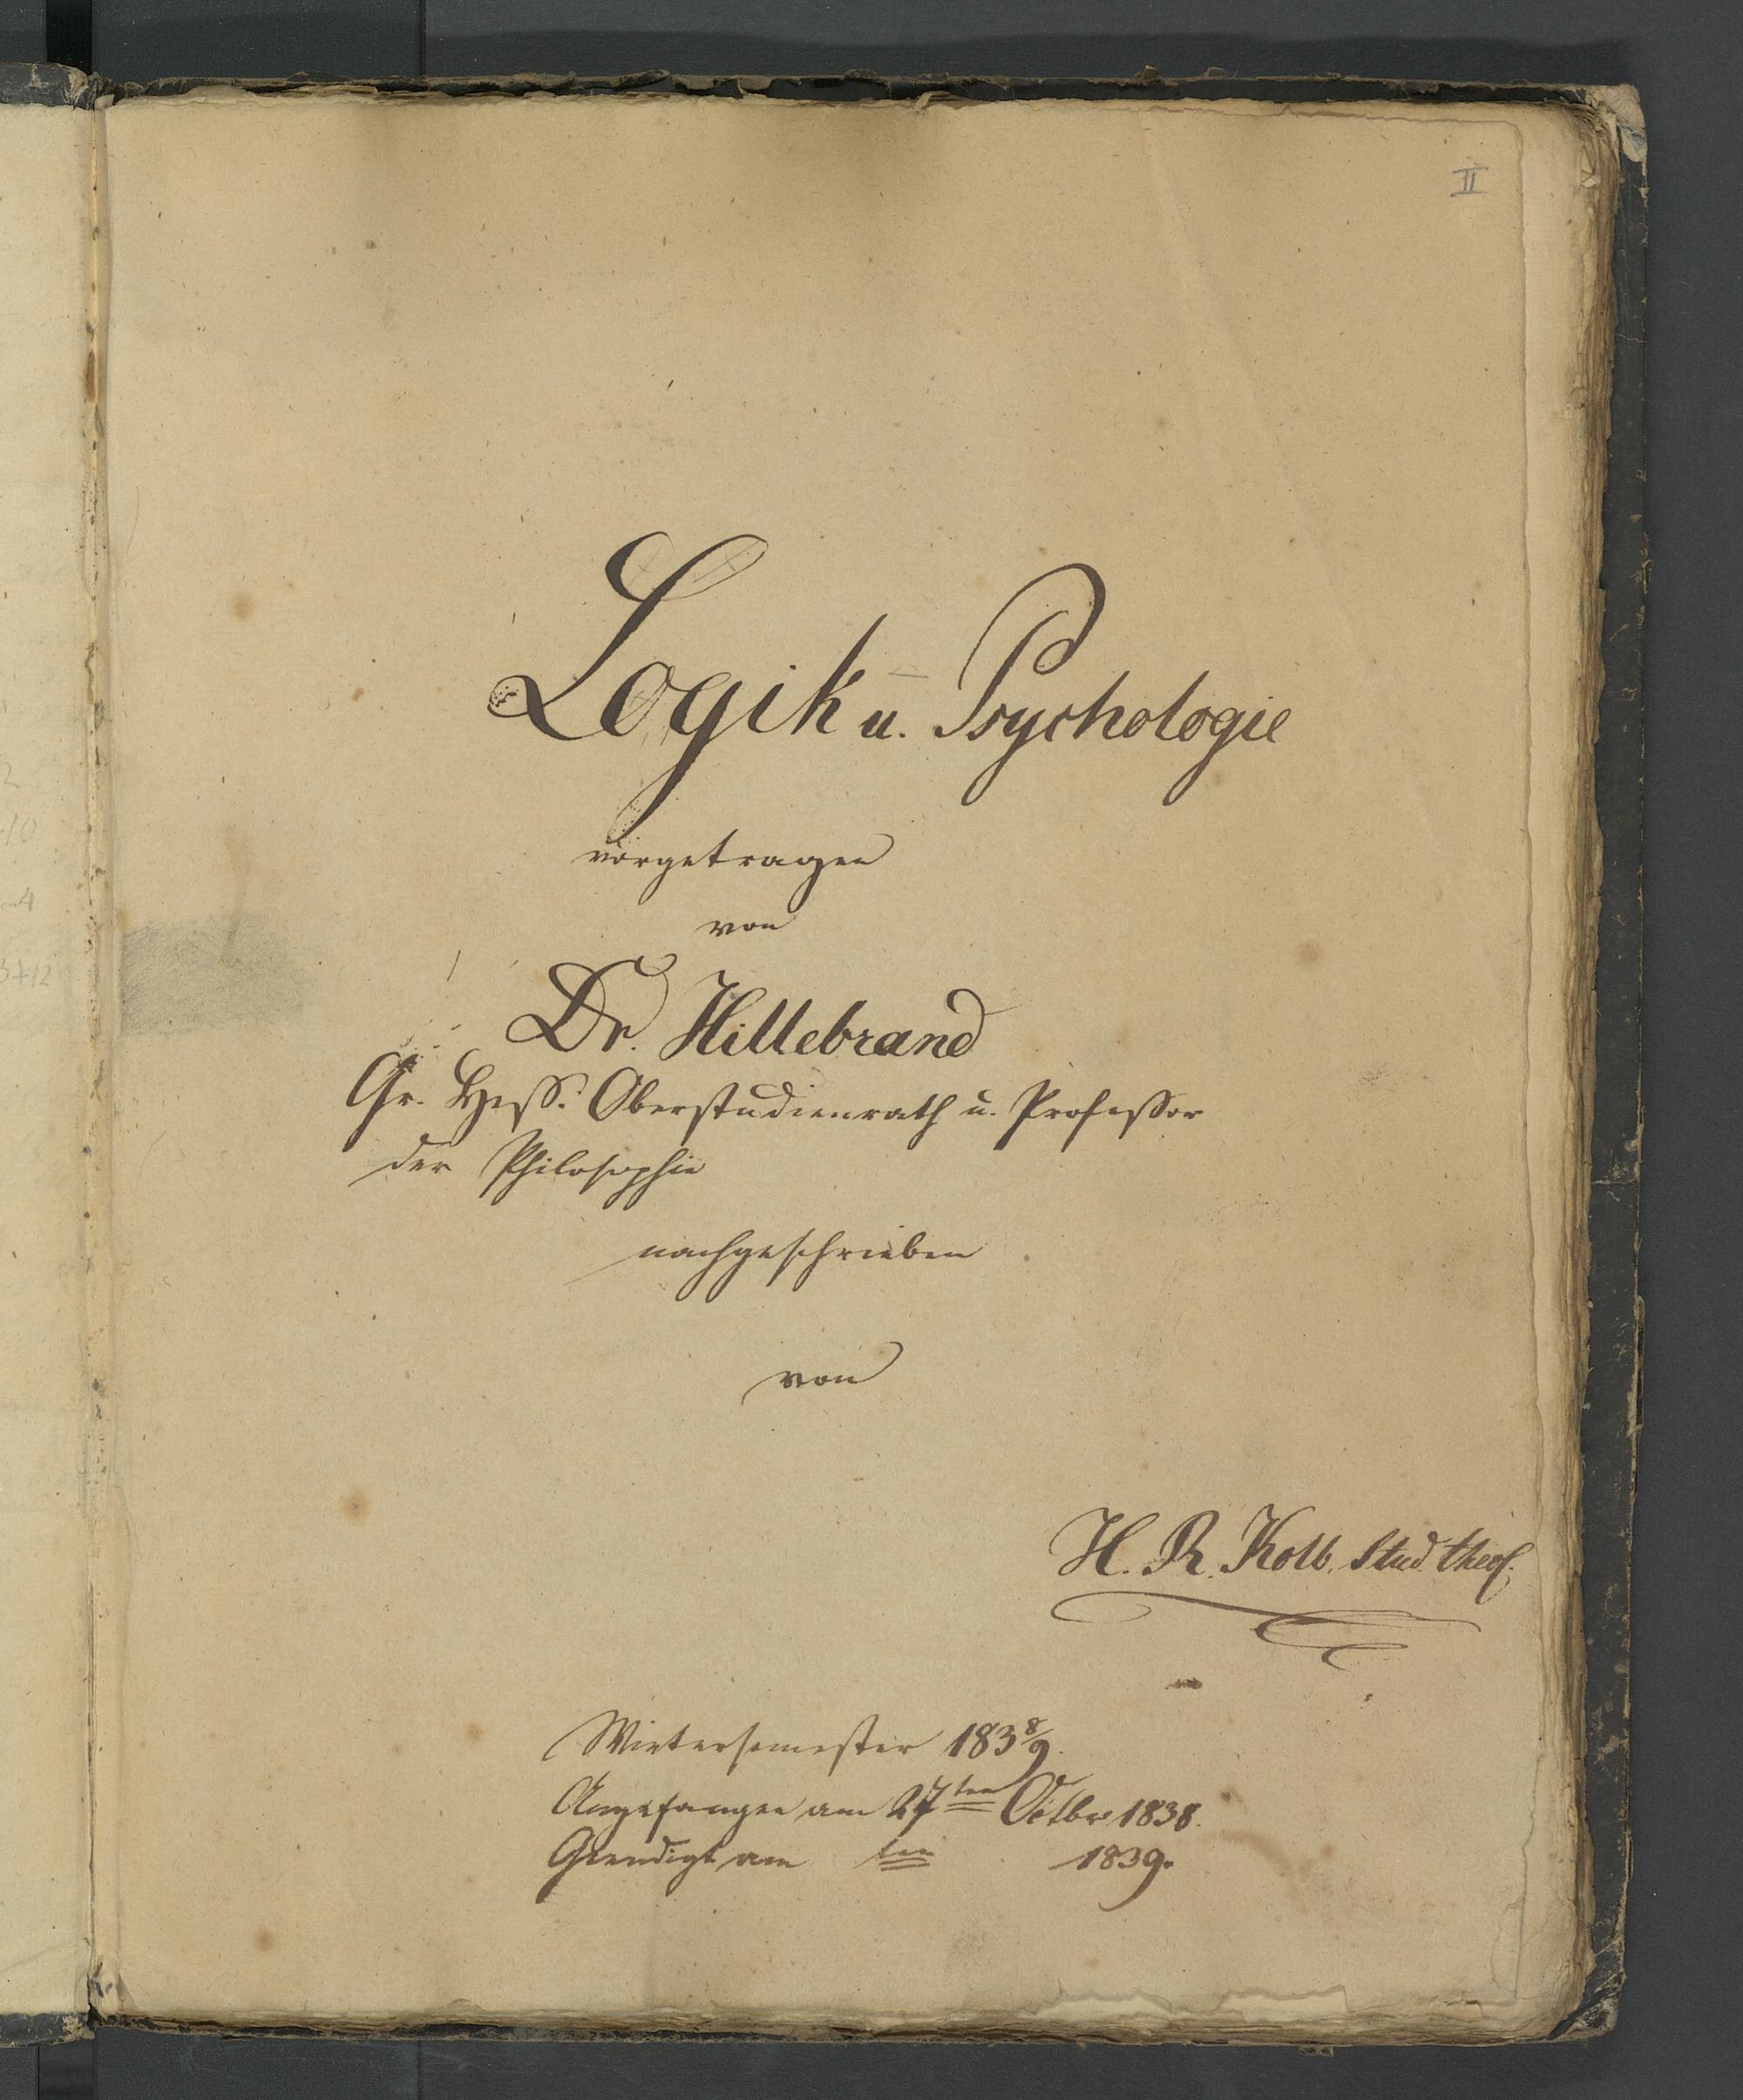 II
Logik u. Psychologie
vorgetragen
von
Dr. Hillebrand
Gr. Hess. Oberstudienrath u. Professor
der Philosophie
nachgeschrieben
von
H. R. Kolb. Stud. theol.
Wintersemester 183 8/9.
Angefangen am 27ten Octbr 1838.
Geendigt am ten 1839.